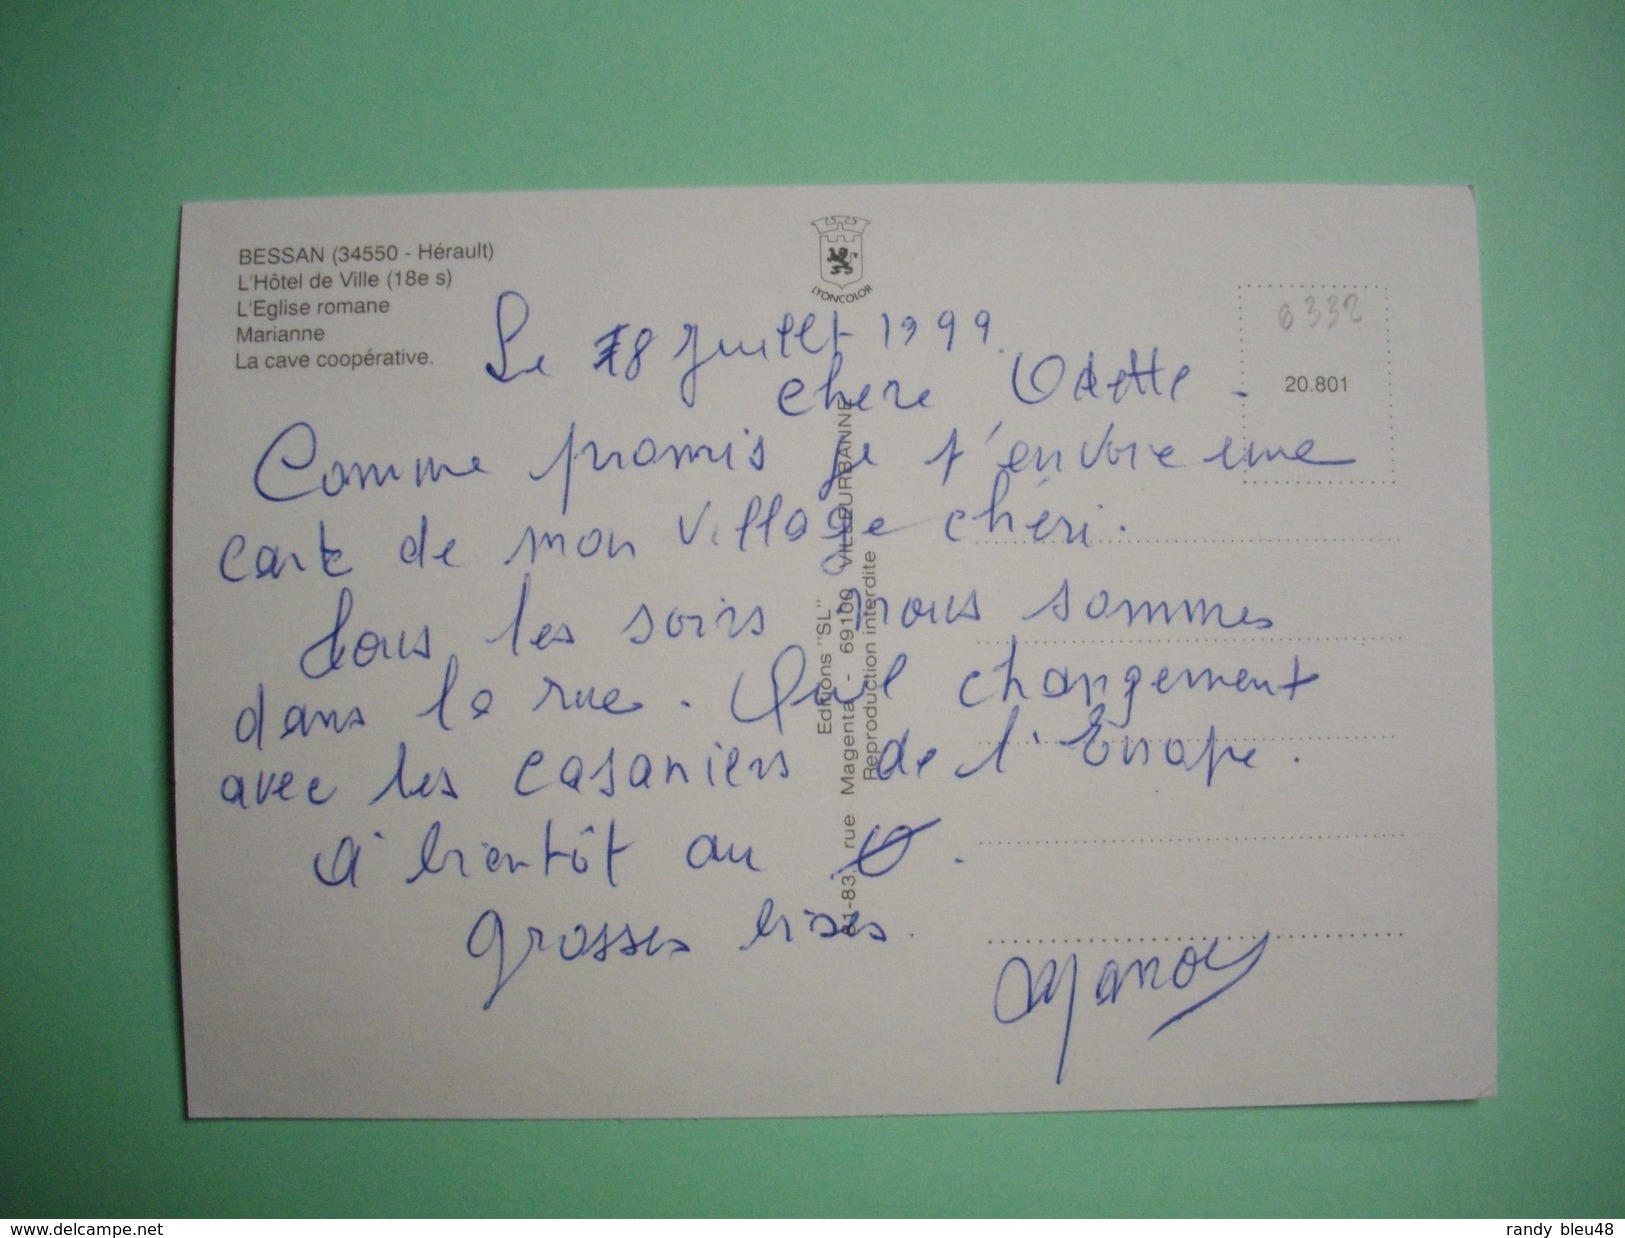 BESSAN (34550 - Hérault)
L'Hôtel de Ville (18e s)
L'Eglise romane
Marianne
La cave coopérative.
LYONCOLOR
0332
20.801
Le 18 Juillet 1999.
chere Odette.
Comme promis je t'envoie une
carte de mon village chéri.
Tous les soirs nous sommes
dans la rue. Quel changement
avec les casaniers de l'Europe.
A bientôt au
grosses bises.
Editions "SL"
81-83, rue Magenta - 69100 VILLEURBANNE
Reproduction interdite
delcampe.net
randy_bleu48